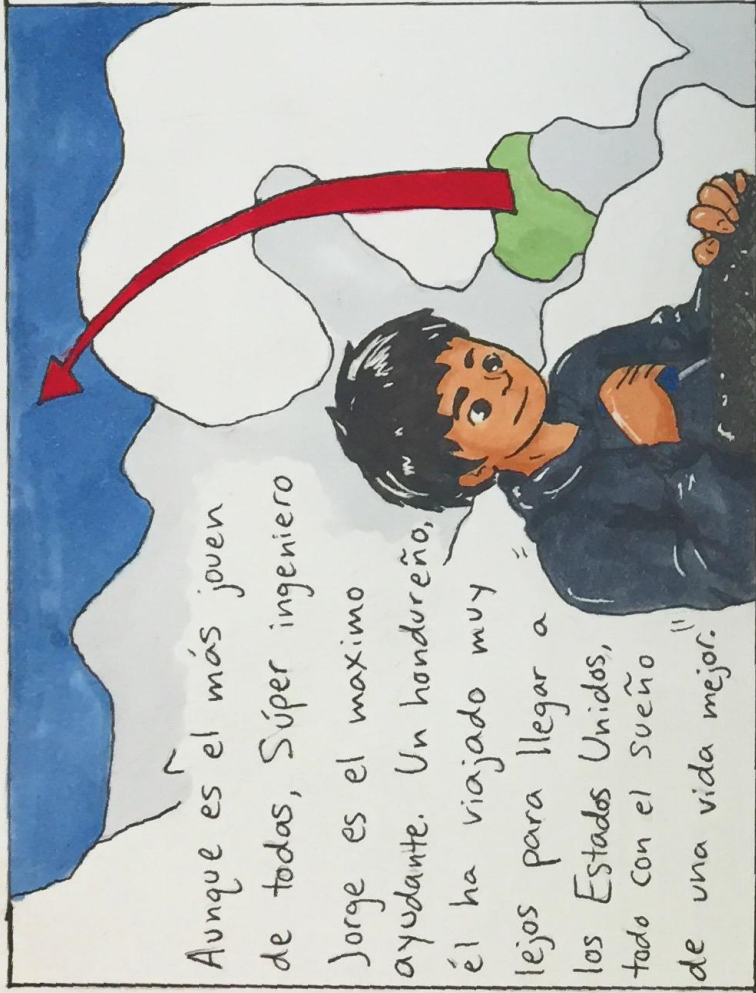 Aunque es el más joven
de todas, Súper ingeniero
Jorge es el maximo
ayudante. Un hondureño,
él ha viajado muy
lejos para llegar a "
los Estados Unidos,
todo con el sueño
de una vida mejor."